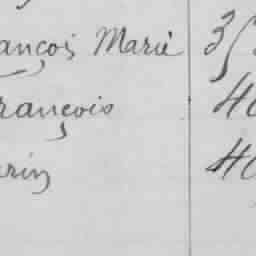 ançois Marie 35
rançois 40
rin 40